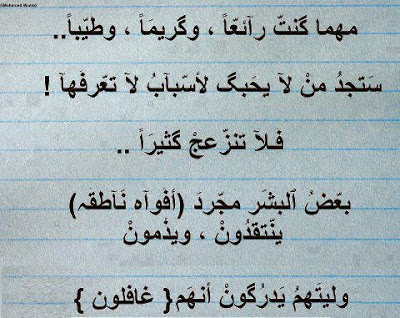 مهما گنتّ رآئعّاً ، وگريمَاً ، وطيّباً..
سَتجدُ منْ لآ يحَبگ لأسّبآبُ لآ تعّرفهآ !
فـلآ تنزّعجْ گثيرَاً ..
بعّضُ آلبشَر مجّردَ (أفوآه نَآطقہ)
ينّتقدُونْ ، ويذّمونْ
وليتَهمُ يَدرُگونْ أنهَم{ غافلون }